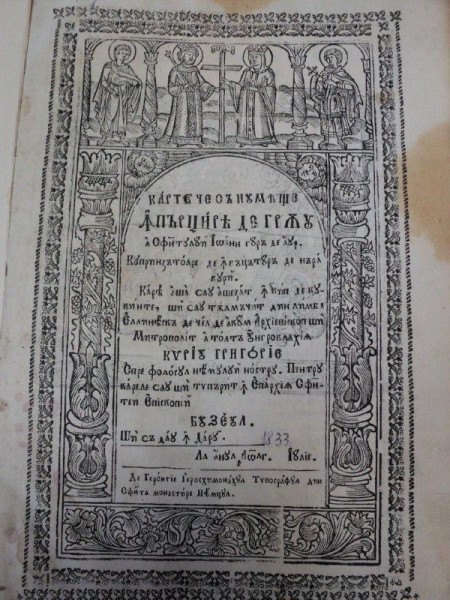 КАРТѢ ЧЕ СЪ НУМѢЩЕ
ꙞПЪРЦИРѢ ДЕ ГРѢУ
А Сфѫтꙋлꙋй Іѡанн гꙋръ де аꙋр.
Кꙋпринзътоаре де
Каре аша саꙋ ашезат ꙟ кип де кꙋ-
винте, ши саꙋ тълмъчит дин лимба
Еллинѣскъ де чел де акꙋм Архіепископ ши
Митрополит а тоатъ Ꙋнгровлахіа
КѴРІꙊ ГРИГОРІЕ
Спре фолосꙋл нѣмꙋлꙋй нострꙋ. Пентрꙋ
кареле саꙋ ши типърит ꙟ Епархіа Сфин-
тей Епископїй
БꙊЗЕꙊЛ.
Ши съ даꙋ ꙟ Дарꙋ.
1833
Ла анꙋл ҂аѡлг. Іꙋліе.
Де Геронтіе Іеросхимонахꙋл Типографꙋл дин
Сфѫнта монастире Нѣмцꙋл.